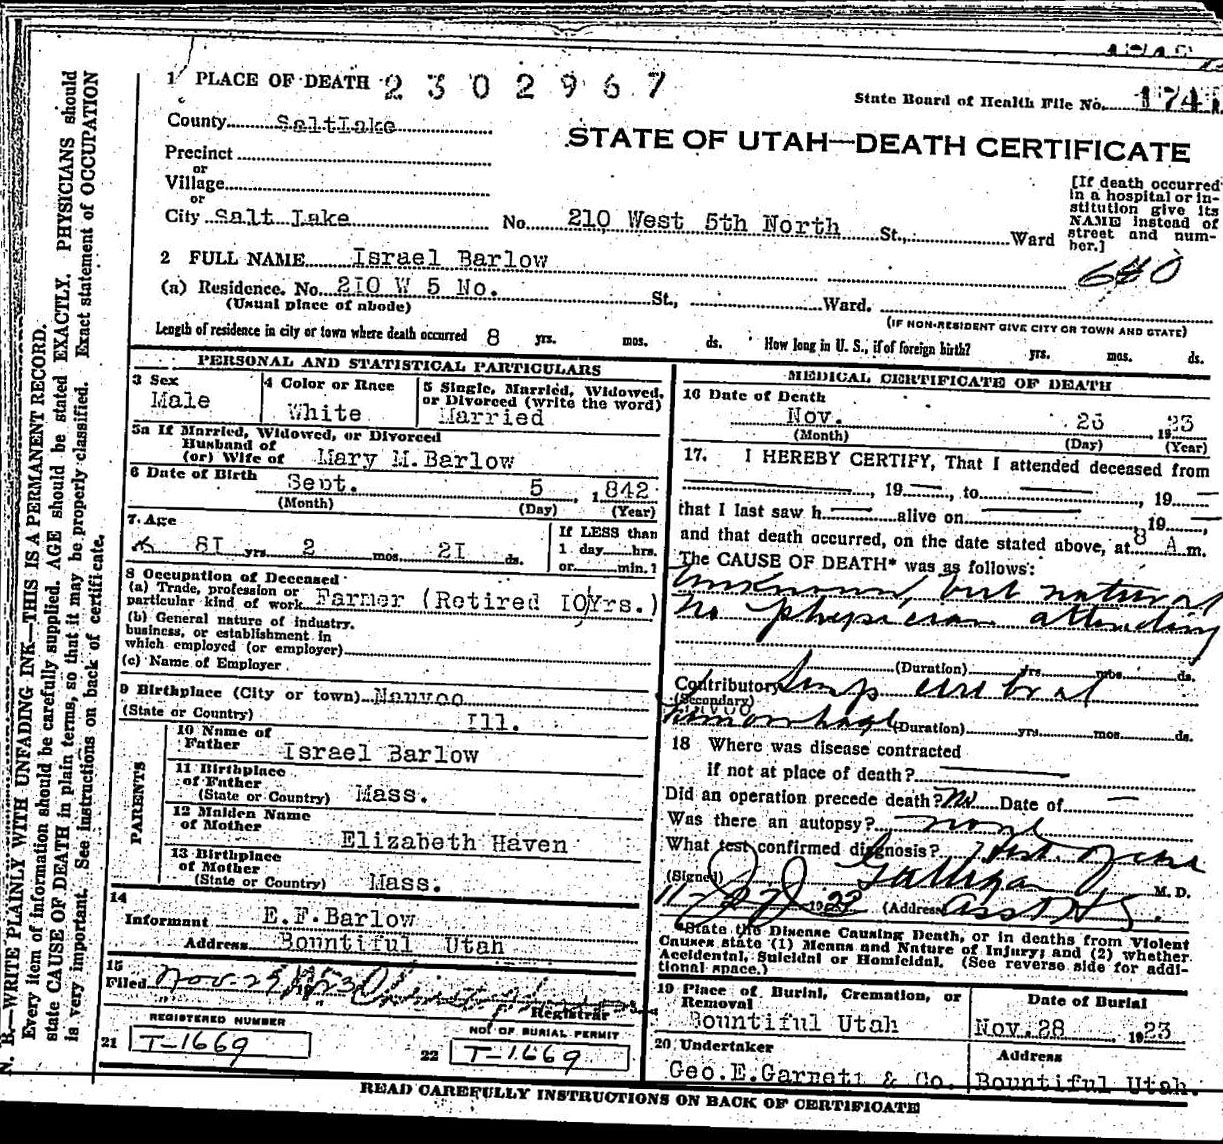 1 PLACE OF DEATH 2302967
State Board of Health File No. 174
County SaltLake
STATE OF UTAH—DEATH CERTIFICATE
Precinct
or
Village
or
City Salt Lake No. 210 West 5th North St., Ward
[If death occurred in a hospital or in-
stitution give its
NAME instead of
street and num-
ber.]
2 FULL NAME Israel Barlow
(a) Residence. No. 210 W 5 No. St., Ward.
(Usual place of abode) (IF NON-RESIDENT GIVE CITY OR TOWN AND STATE)
Length of residence in city or town where death occurred 8 yrs. mos. ds. How long in U. S., if of foreign birth? yrs. mos. ds.
PERSONAL AND STATISTICAL PARTICULARS
3 Sex
Male
4 Color or Race
White
5 Single, Married, Widowed,
or Divorced (write the word)
Married
5a If Married, Widowed, or Divorced
Husband of
(or) Wife of Mary M.Barlow
6 Date of Birth Sept. 5, 1842
(Month) (Day) (Year)
7. Age
81 yrs. 2 mos. 21 ds.
If LESS than
1 day hrs.
or min.?
8 Occupation of Deceased
(a) Trade, profession or
particular kind of work Farmer (Retired 10Yrs.)
(b) General nature of industry.
business, or establishment in
which employed (or employer)
(c) Name of Employer
9 Birthplace (City or town) Nauvoo
(State or Country) Ill.
PARENTS
10 Name of
Father Israel Barlow
11 Birthplace
of Father
(State or Country) Mass.
12 Maiden Name
of Mother
Elizabeth Haven
13 Birthplace
of Mother
(State or Country) Mass.
14
Informant E.F.Barlow
Address Bountiful Utah
15
Filed Nov. 
Registrar
REGISTERED NUMBER
21 T-1669
NO. OF BURIAL PERMIT
22 T-1669
MEDICAL CERTIFICATE OF DEATH
16 Date of Death
Nov. 26, 1923
(Month) (Day) (Year)
17. I HEREBY CERTIFY, That I attended deceased from
, 19 , to , 19
that I last saw h alive on , 19
and that death occurred, on the date stated above, at 8 A m.
The CAUSE OF DEATH* was as follows:
Unknown, but natural
No physician attending
(Duration) yrs. mos. ds.
Contributory cerebral
(Secondary)
hemorrhage (Duration) yrs. mos. ds.
18 Where was disease contracted
if not at place of death?
Did an operation precede death? No Date of
Was there an autopsy? none
What test confirmed diagnosis? Hist. of case
(Signed) M. D.
(Address)
*State the Disease Causing Death, or in deaths from Violent
Causes state (1) Means and Nature of Injury; and (2) whether
Accidental, Suicidal or Homicidal. (See reverse side for addi-
tional space.)
19 Place of Burial, Cremation, or
Removal
Bountiful Utah
Date of Burial
Nov. 28 1923
20 Undertaker
Geo.E.Garrett & Co.
Address
Bountiful Utah.
READ CAREFULLY INSTRUCTIONS ON BACK OF CERTIFICATE
N. B.—WRITE PLAINLY WITH UNFADING INK—THIS IS A PERMANENT RECORD.
Every item of information should be carefully supplied. AGE should be stated EXACTLY. PHYSICIANS should
state CAUSE OF DEATH in plain terms, so that it may be properly classified. Exact statement of OCCUPATION
is very important. See instructions on back of certificate.